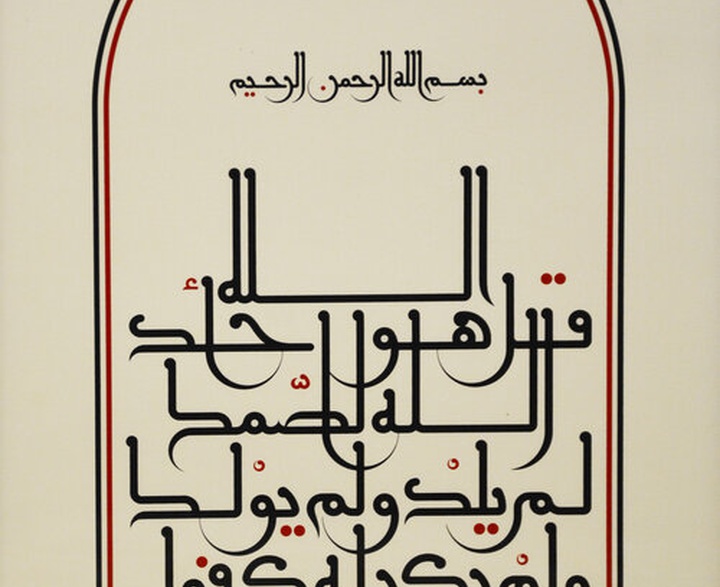 بسم الله الرحمن الرحيم
قل هو الله أحد
الله الصمد
لم يلد ولم يولد
ولم يكن له كفوا